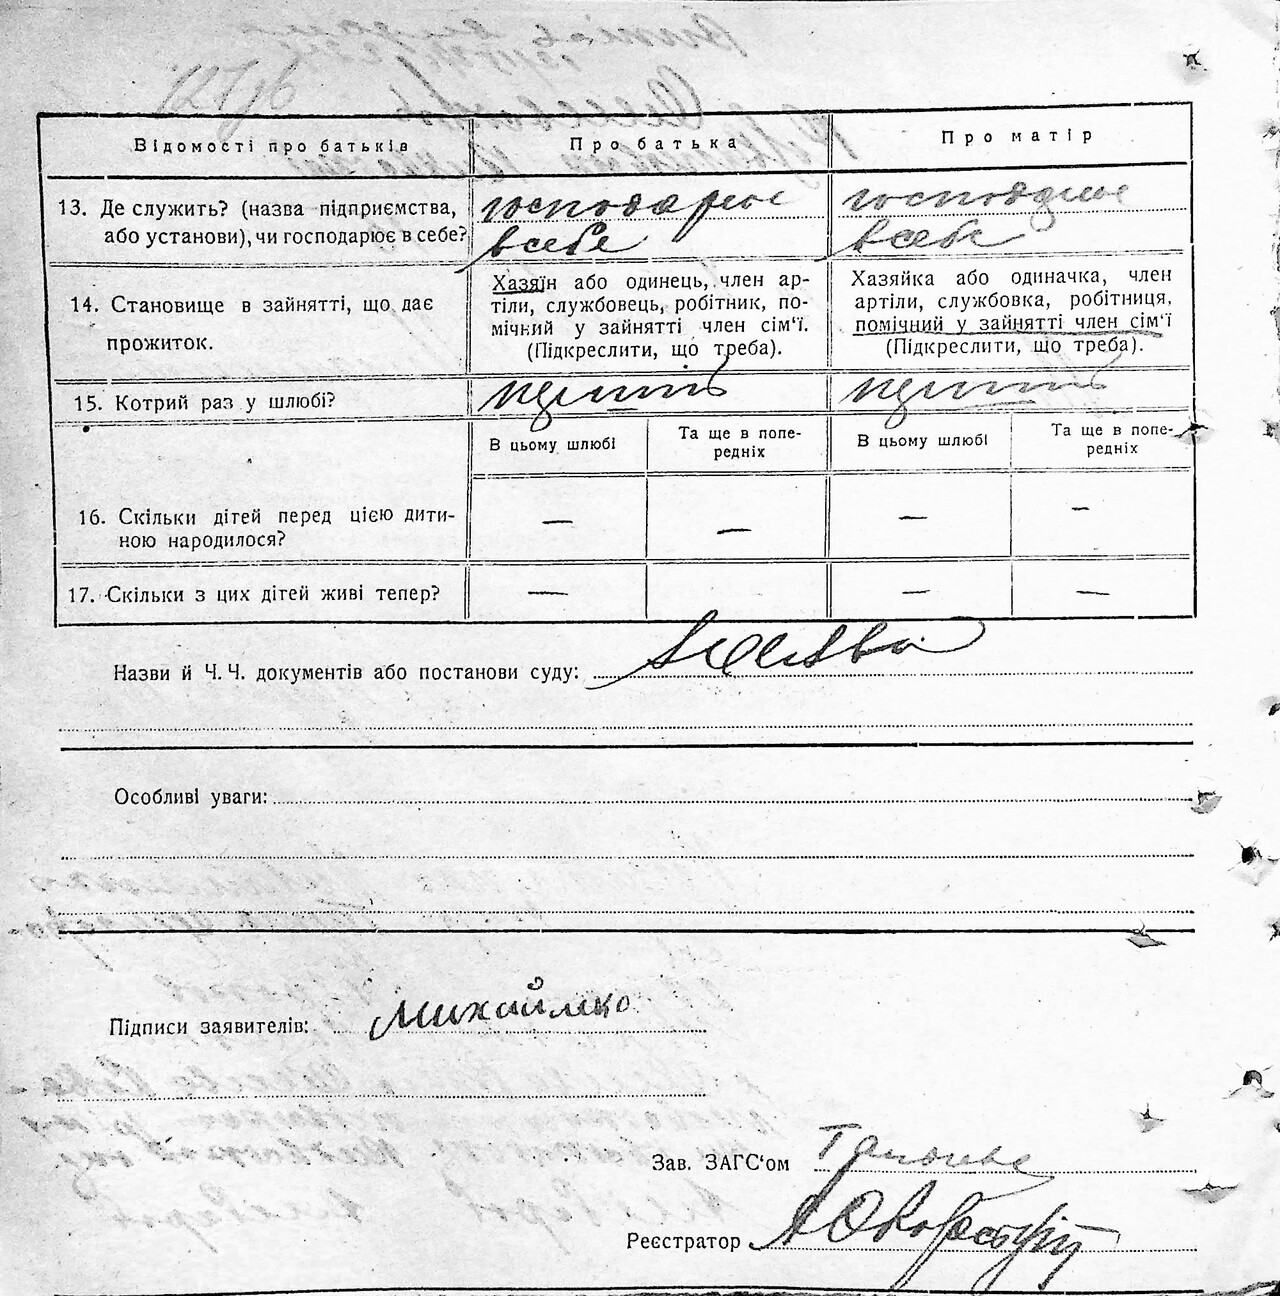 Відомості про батьків
Про батька
Про матір
13. Де служить? (назва підприємства,
або установи), чи господарює в себе?
господарює
в себе
господарює
в себе
14. Становище в зайнятті, що дає
прожиток.
Хазяїн або одинець, член ар-
тіли, службовець, робітник, по-
мічний у зайнятті член сім'ї.
(Підкреслити, що треба).
Хазяйка або одиначка, член
артіли, службовка, робітниця,
помічний у зайнятті член сім'ї
(Підкреслити, що треба).
15. Котрий раз у шлюбі?
В цьому шлюбі
Та ще в попе-
редніх
В цьому шлюбі
Та ще в попе-
редніх
16. Скільки дітей перед цією дити-
ною народилося?
— — — —
17. Скільки з цих дітей живі тепер?
— — —
Назви й Ч. Ч. документів або постанови суду:
Особливі уваги:
Підписи заявителів: Михайлко
Зав. ЗАГС'ом
Реєстратор